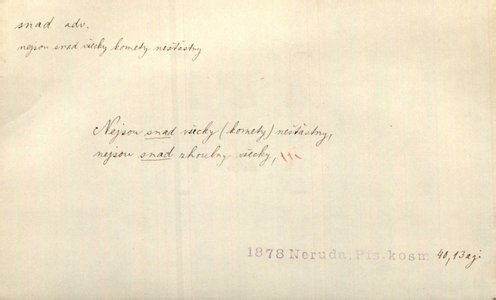 snad adv.
nejsou snad všecky komety nešťastny
Nejsou snad všecky (komety) nešťastny,
nejsou snad zhoubny všecky,
1878 Neruda, Pís. kosm 40, 13